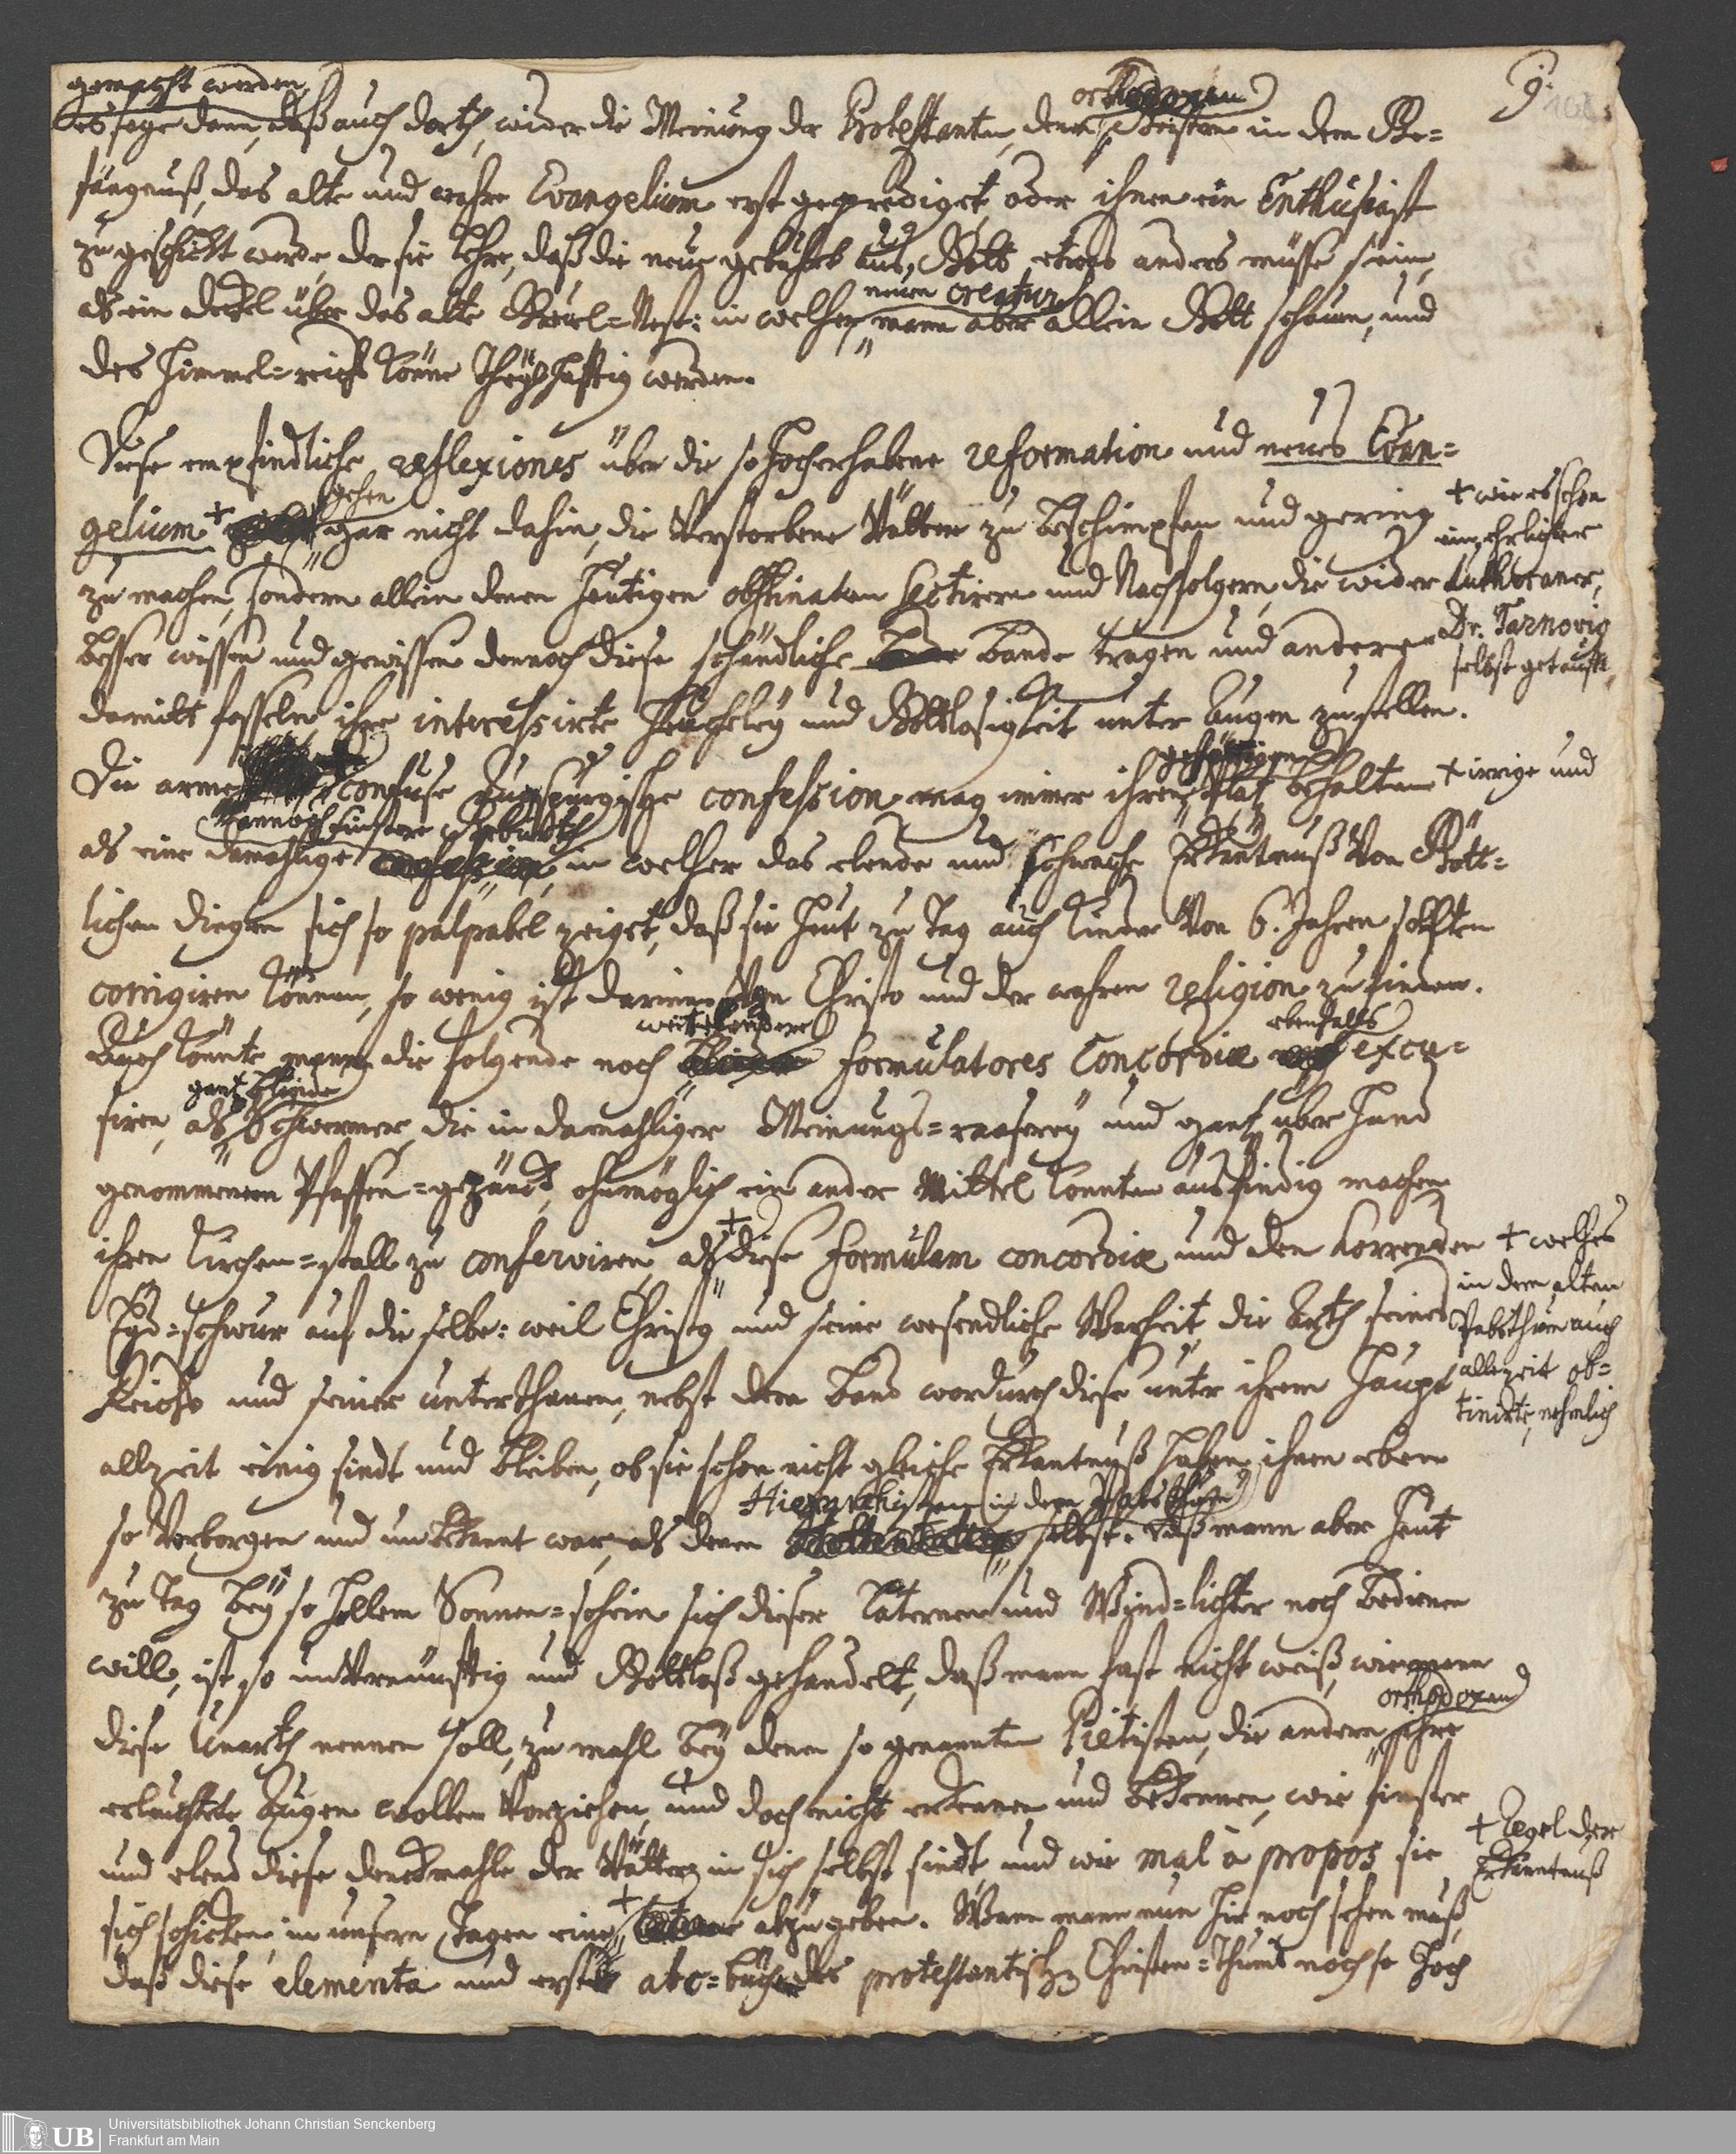 gemacht werden,
es sage dann, daß auch dorth, wider die Meinung der Protestanten, denen orthodoxen Geistern in dem Ge=
fängnuß, das alte und wahre Evangelium erst geprediget, oder ihnen ein Enthusiast
zugeschickt werde, der sie lehre, daß die neue geburth aus Gott etwas anders müsse sein,
als ein deckel über das alte Greuel=Nest: in welcher neuen creatur mann aber allein Gott schauen, und
des Himmel=reichs könne theilhafftig werden.
Diese empfindliche reflexiones über die so hocherhabene reformation und neues Evan=
gelium + gehen gar nicht dahin, die Verstorbene Vätter zu beschimpfen und gering
+ wie es schon
ein ehrlicher
Lutheraner,
Dr. Tarnovig
selbst getaufft,
zu machen, sondern allein denen heutigen obstinaten Sectirern und Nachfolgern, die wider
besser wissen und gewissen dennoch diese schändliche bande tragen und andere
damitt fesseln ihre interessirte Heucheley und Gottlosigkeit unter Augen zustellen.
Die arme + confuse Augspurgische confession mag immer ihren gehörigen Plaz behalten
+ irrige und
als eine damahlige annoch finstere Geburth, in welcher das elende und schwache Erkäntnuß Von Gött=
lichen dingen sich so palpabel zeiget, daß sie heut zu Tag auch kinder Von 6. Jahren sollten
corrigiren können, so wenig ist darinnen Von Christo und der wahren religion zu finden.
Auch könnte mann die folgende noch formulatores Concordiæ ebenfalls excu=
siren, als gantz blinde Schwermer, die in damahliger Meinungs=raserey und gantz über Hand
genommenem Pfaffen=gezänck, ohnmöglich ein ander Mittel konnten ausfindig machen
ihren kirchen=stall zu conserviren, als + diese formulam concordiæ und den
+ welches
in dem alten
Pabsthum auch
allezeit ob=
tinirte, nehmlich
Eyd=schwur auf dieselbe: weil Christus und seine wesendliche Warheit, die Arth seines
Reichs und seiner unterthanen, nebst dem band wordurch diese unter ihrem Haupt
allzeit einig sindt und bleiben, ob sie schon nicht gleiche Erkantnuß haben, ihnen eben
so Verborgen und unbekannt war, als denen in dem Pabstthum selbst. daß mann aber heut
zu Tag bey so hellem Sonnen=schein sich dieser Laternen und Wind=lichter noch bedienen
will, ist so unvernünfftig und Gottloß gehandelt, daß mann fast nicht weiß, wie mann
diese Unarth nennen soll, zu mahl bey denen so genannten Pietisten, die andern orthodoxen ihre
erleuchtete Augen wollen Vorziehen, und doch nicht erkennen und bekennen, wie finster
und elend diese denckmahle der Vätter in sich selbst sindt, und wie mal à propos sie
sich schicken, in unsern Tagen eine + abzugeben. Wann mann nun hie noch sehen muß,
+ Regel der
Erkäntnuß
daß diese elementa und erste abc=bücher des protestantischen Christen=thums noch so hoch
Universitätsbibliothek Johann Christian Senckenberg
Frankfurt am Main
UB